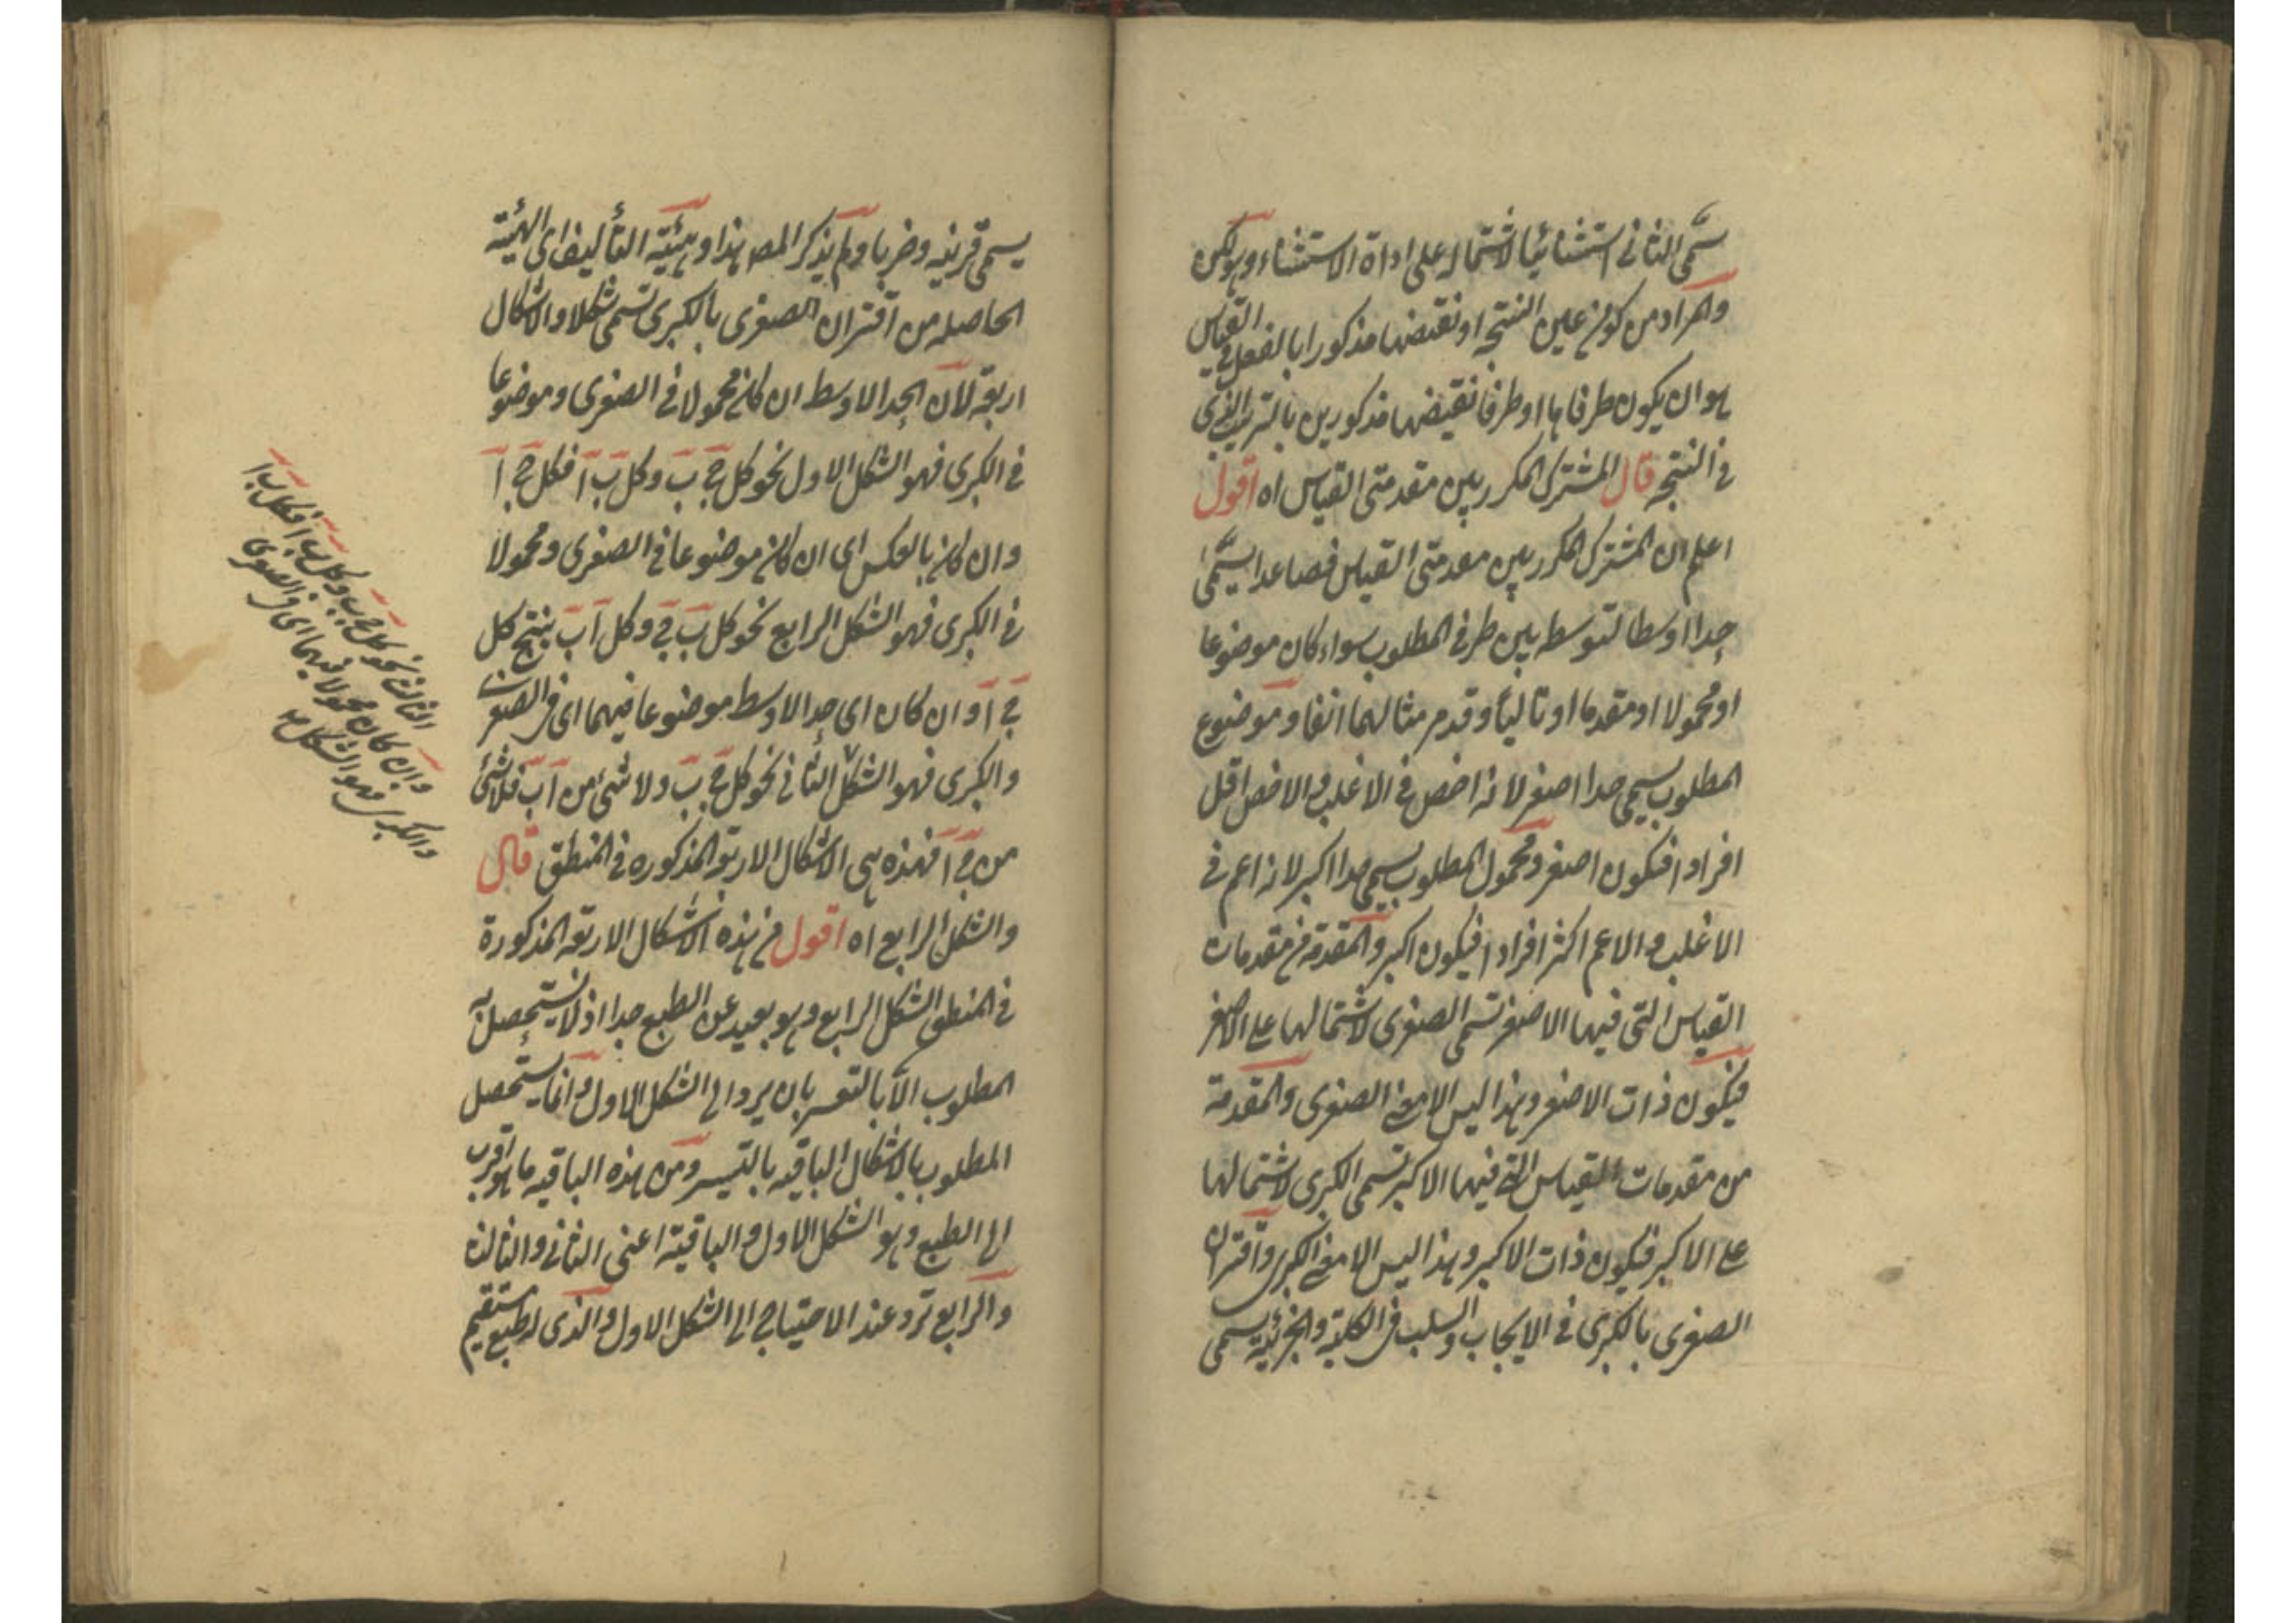 سمّى الثانى استثنائيا لاشتماله على اداة الاستثناء وهو لكن
والمراد من كون عين النتيجة او نقيضها مذكورا بالفعل فى القياس
هو ان يكون طرفاها او طرفا نقيضها مذكورين بالترتيب الذى
فى النتيجة قال المشترك المكرر بين مقدمتى القياس اه اقول
اعلم ان المشترك المكرر بين مقدمتى القياس فصاعدا يسمّى
حدا اوسطا لتوسطه بين طرفى المطلوب سواء كان موضوعا
او محمولا او مقدما او تاليا وقد مر مثالهما انفا وموضوع
المطلوب يسمى حدا اصغر لانه اخص فى الاغلب والاخص اقل
افرادا فيكون اصغر ومحمول المطلوب يسمى حدا اكبر لانه اعم فى
الاغلب والاعم اكثر افرادا فيكون اكبر والمقدمة من مقدمات
القياس التى فيها الاصغر تسمى الصغرى لاشتمالها على الاصغر
فيكون ذات الاصغر وهذا ليس الا معنى الصغرى والمقدمة
من مقدمات القياس التى فيها الاكبر تسمى الكبرى لاشتمالها
على الاكبر فيكون ذات الاكبر وهذا ليس الا معنى الكبرى واقتران
الصغرى بالكبرى فى الايجاب والسلب فى الكلية والجزئية يسمى
يسمى قرينه وضربا ولم يذكر المص هذا وهيئة التأليف اى الهيئة
الحاصله من اقتران الصغرى بالكبرى تسمى شكلا والاشكال
اربعة لان الحد الاوسط ان كان محمولا فى الصغرى وموضوعا
فى الكبرى فهو الشكل الاول نحو كل ج ب وكل ب ا فكل ج ا
وان كان بالعكس اى ان كان موضوعا فى الصغرى ومحمولا
فى الكبرى فهو الشكل الرابع نحو كل ب ج وكل ا ب ينتج كل
ج ا وان كان اى حد الاوسط موضوعا فيهما اى فى الصغرى
والكبرى فهو الشكل الثانى نحو كل ج ب ولا شئ من ا ب فلا شئ
من ج ا فهذه هى الاشكال الاربعة المذكوره فى المنطق قال
والشكل الرابع اه اقول من هذه الاشكال الاربعة المذكورة
فى المنطق الشكل الرابع وهو بعيد عن الطبع جدا اذ لا يستحصل به
المطلوب الا بالتعسر بان يرد الى الشكل الاول وانما يستحصل
المطلوب بالاشكال الباقيه بالتيسر ومن هذه الباقيه ما هو اقرب
الى الطبع وهو الشكل الاول والباقية اعنى الثانى والثالث
والرابع ترد عند الاحتياج الى الشكل الاول والذى له طبع مستقيم
الثالث نحو كل ج ب وكل ب ا فكل ب ا
وان كان محمولا فيهما اى فى الصغرى
والكبرى فهو الشكل صح